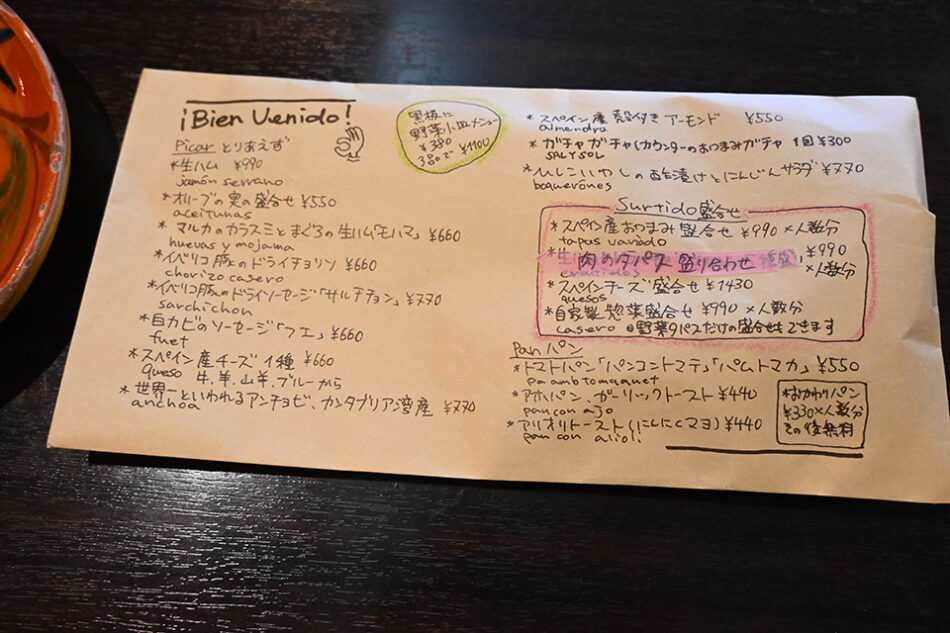 ¡Bien Venido!
Picar とりあえず
*生ハム ¥990
jamón serrano
*オリーブの実の盛合せ ¥550
aceitunas
*マルカのカラスミとまぐろの生ハム「モハマ」 ¥660
huevas y mojama
*イベリコ豚のドライチョリソ ¥660
chorizo casero
*イベリコ豚のドライソーセージ「サルチチョン」 ¥770
sarchichon
*白カビのソーセージ「フエ」 ¥660
fuet
*スペイン産チーズ1種 ¥660
queso 牛、羊、山羊、ブルーから
*世界一といわれるアンチョビ、カンタブリア湾産 ¥770
anchoa
黒板に
野菜小皿メニュー
¥380
3皿で ¥1100
*スペイン産 殻付きアーモンド ¥550
almendra
*ガチャガチャ(カウンターのおつまみガチャ 1回 ¥300
SAL Y SOL
*ひしこいわしの酢漬けとにんじんサラダ ¥770
boquerónes
Surtido 盛合せ
*スペイン産おつまみ盛合せ ¥990 ×人数分
tapas variado
*生 肉のタパス 盛り合わせ ¥990
×人数分
*スペインチーズ盛合せ ¥1430
quesos
*自家製惣菜盛合せ ¥990 ×人数分
casero 野菜タパスだけの盛合せもできます
Pan パン
*トマトパン「パンコントマテ」「パムトマカ」 ¥550
pa amb tomaquet
*アホパン、ガーリックトースト ¥440
pan con ajo
*アリオリトースト(にんにくマヨ) ¥440
pan con alioli
*おかわりパン
¥330×人数分
その後無料